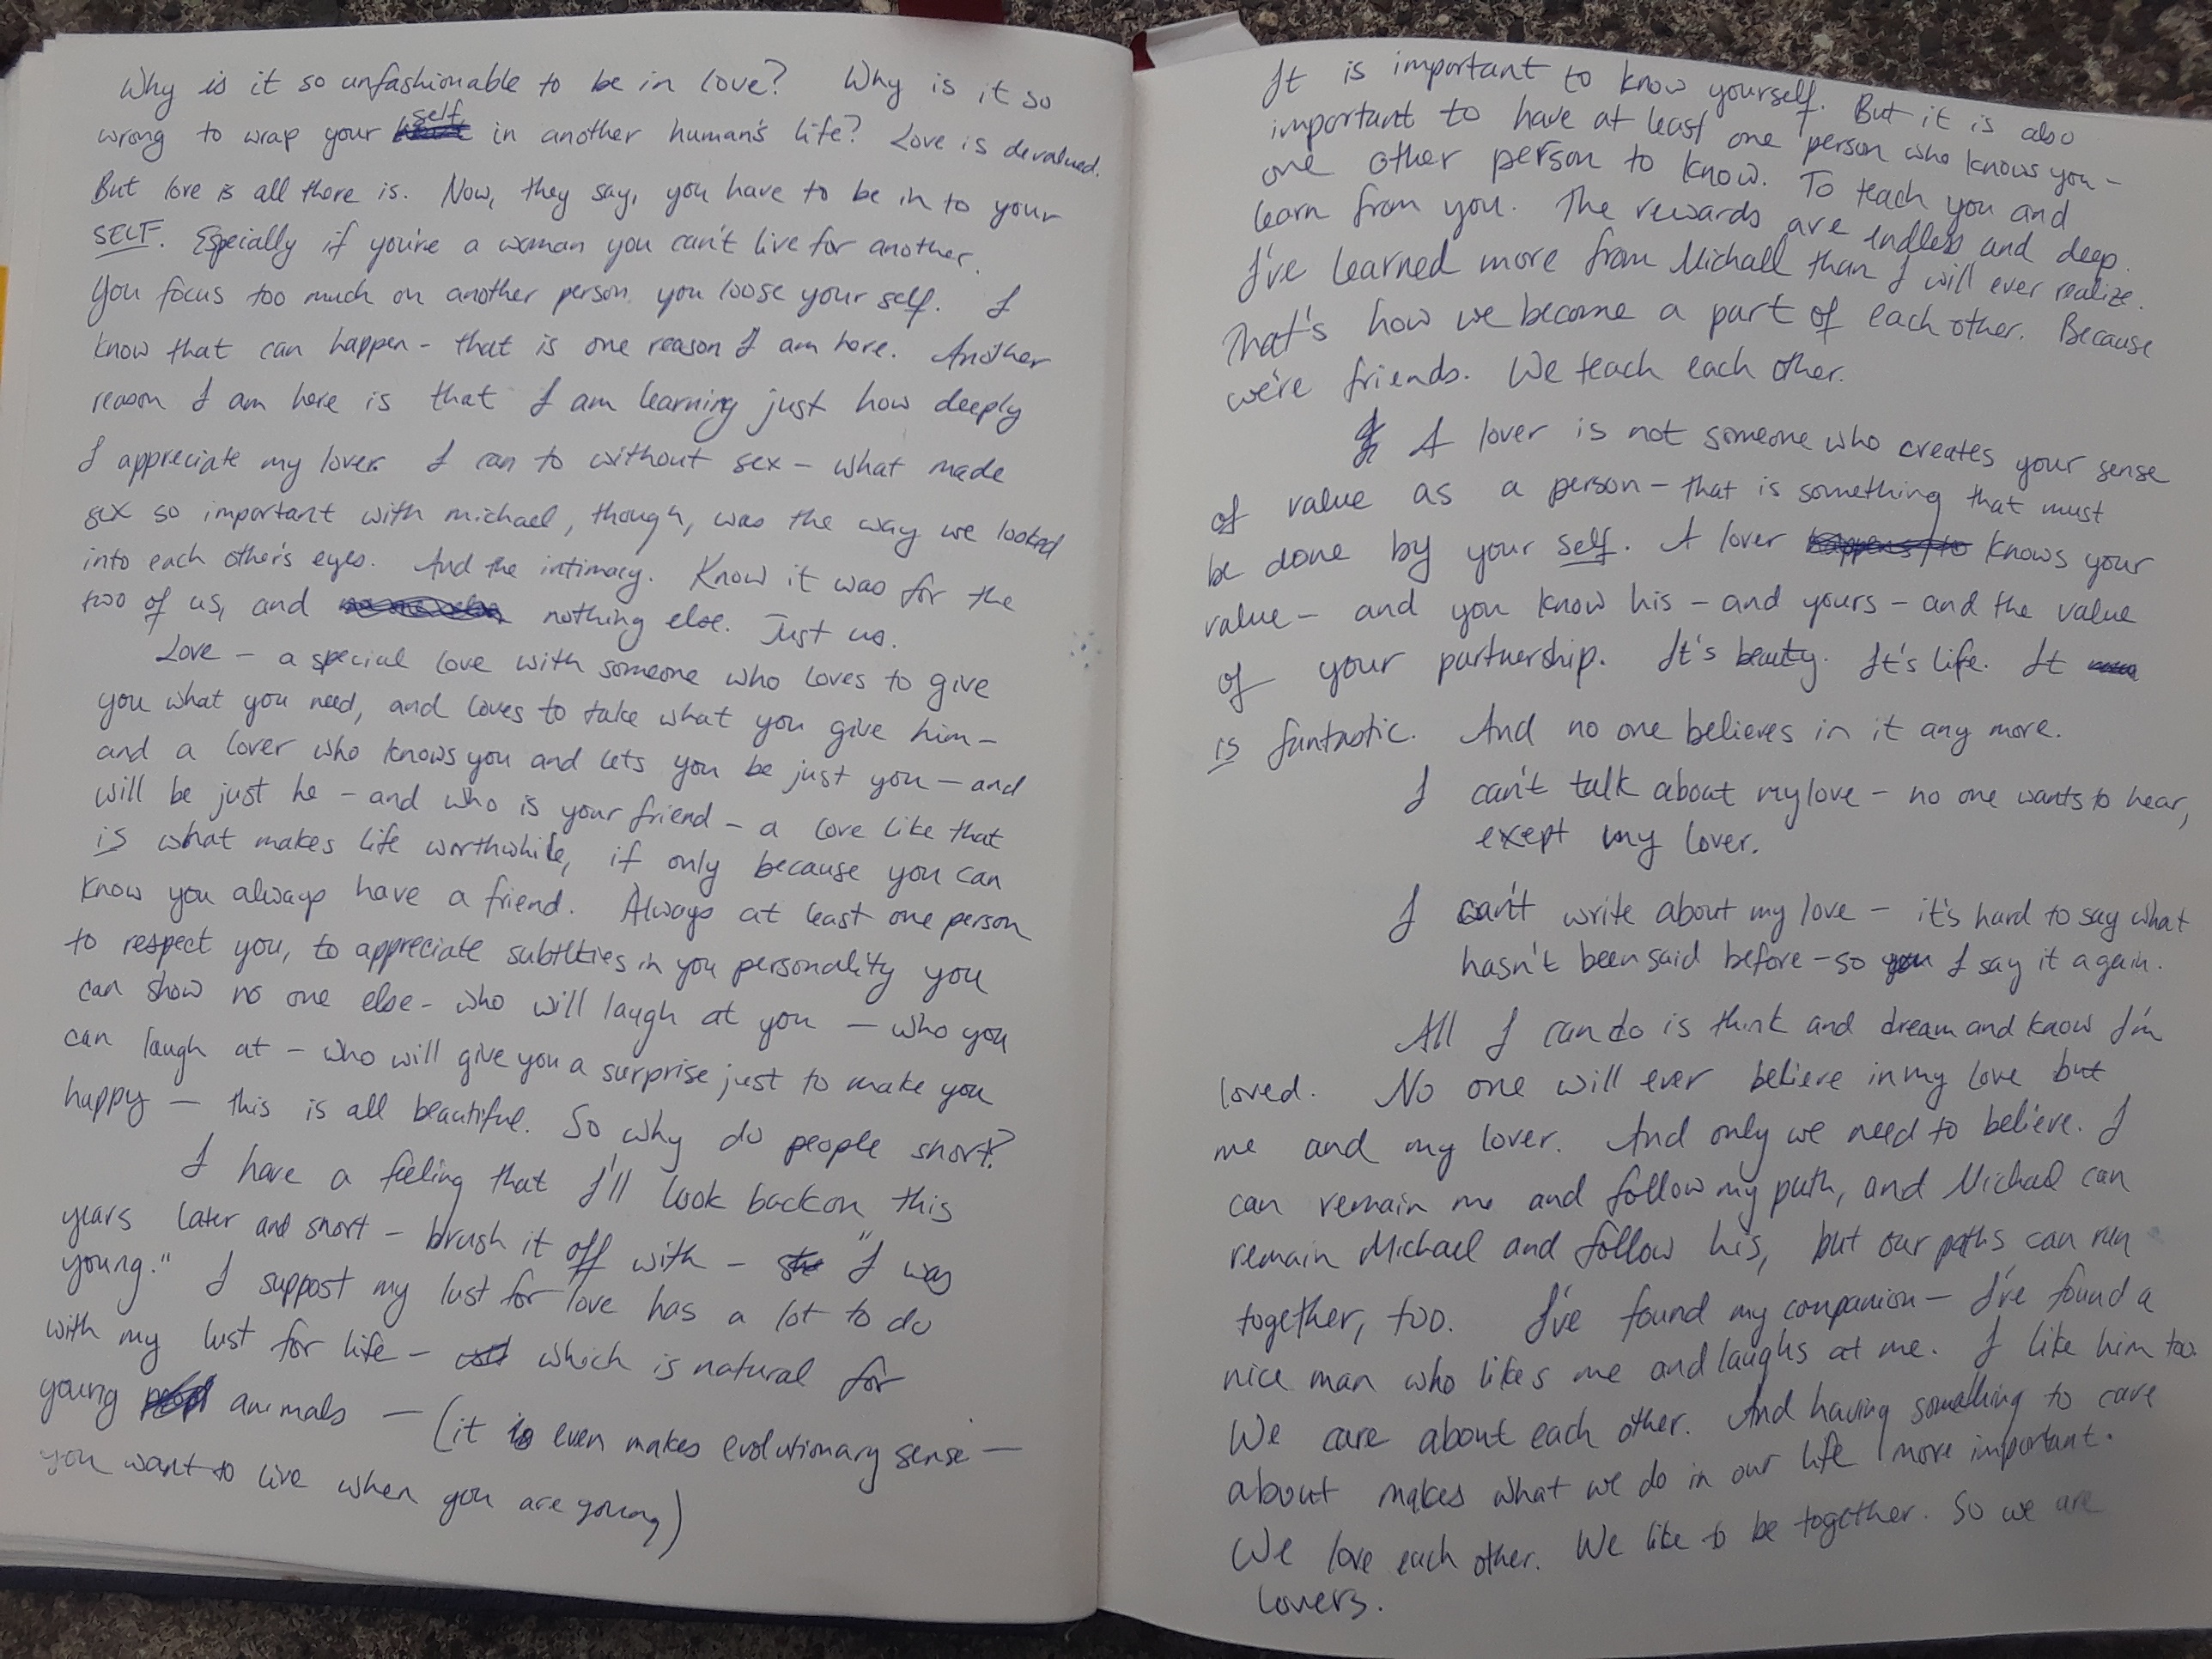 Why is it so unfashionable to be in love? Why is it so
wrong to wrap your self in another human's life? Love is devalued.
But love is all there is. Now, they say, you have to be in to your
SELF. Especially if you're a woman you can't live for another.
You focus too much on another person you loose your self. I
know that can happen - that is one reason I am here. Another
reason I am here is that I am learning just how deeply
I appreciate my lover. I can to without sex - what made
sex so important with michael, though, was the way we looked
into each other's eyes. And the intimacy. Know it was for the
two of us, and nothing else. Just us.
Love - a special love with someone who loves to give
you what you need, and loves to take what you give him -
and a lover who knows you and lets you be just you - and
will be just he - and who is your friend - a love like that
is what makes life worthwhile, if only because you can
know you always have a friend. Always at least one person
to respect you, to appreciate subtlties in you personality you
can show no one else - who will laugh at you - who you
can laugh at - who will give you a surprise just to make you
happy - this is all beautiful. So why do people snort?
I have a feeling that I'll look back on this
years later and snort - brush it off with - "I was
young." I suppost my lust for love has a lot to do
with my lust for life - which is natural for
young animals - (it even makes evolutionary sense -
you want to live when you are young)
It is important to know yourself. But it is also
important to have at least one person who knows you -
one other person to know. To teach you and
learn from you. The rewards are endless and deep.
I've learned more from Michael than I will ever realize.
That's how we become a part of each other. Because
we're friends. We teach each other.
A lover is not someone who creates your sense
of value as a person - that is something that must
be done by your self. A lover knows your
value - and you know his - and yours - and the value
of your partnership. It's beauty. It's life. It
is fantastic. And no one believes in it any more.
I can't talk about my love - no one wants to hear,
exept my lover.
I can't write about my love - it's hard to say what
hasn't been said before - so I say it again.
All I can do is think and dream and know I'm
loved. No one will ever believe in my love but
me and my lover. And only we need to believe. I
can remain me and follow my path, and Michael can
remain Michael and follow his, but our paths can run
together, too. I've found my companion - I've found a
nice man who likes me and laughs at me. I like him too.
We care about each other. And having something to care
about makes what we do in our life more important.
We love each other. We like to be together. So we are
lovers.